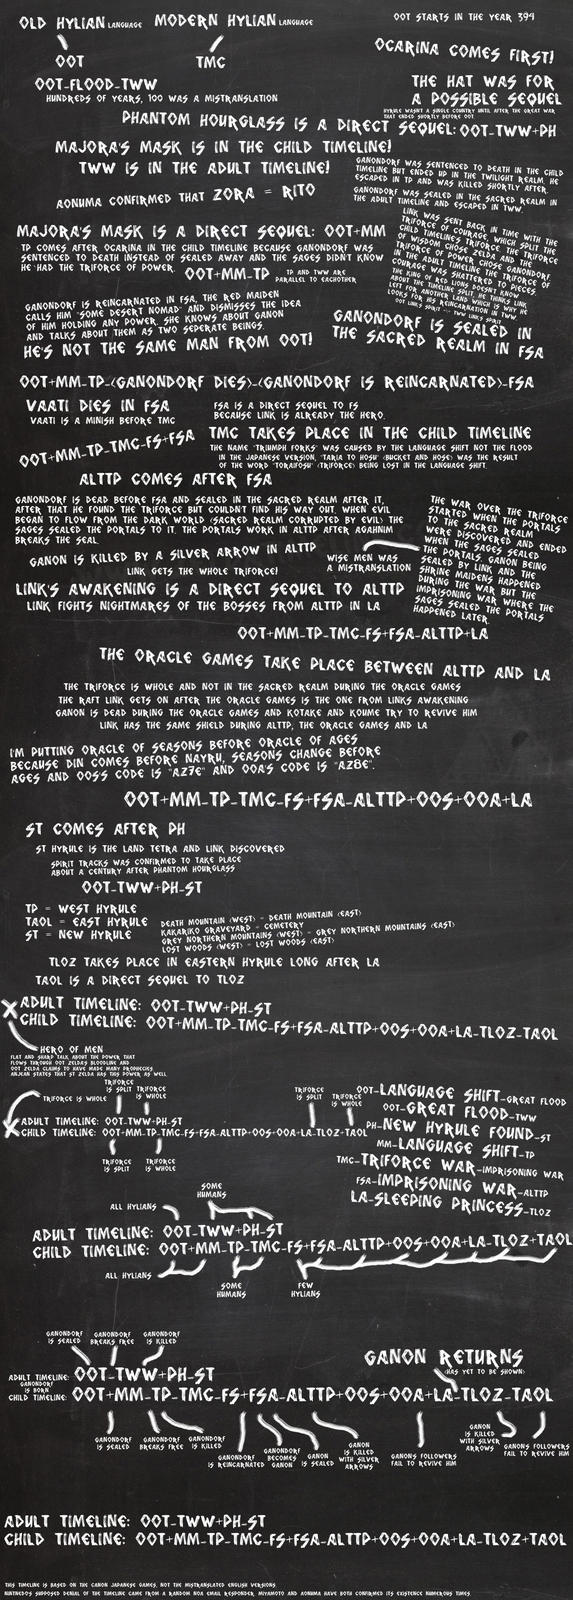 OLD HYLIAN LANGUAGE MODERN HYLIAN LANGUAGE
OOT STARTS IN THE YEAR 394
OOT TMC
OCARINA COMES FIRST!
OOT-FLOOD-TWW
HUNDREDS OF YEARS, 100 WAS A MISTRANSLATION
THE HAT WAS FOR
A POSSIBLE SEQUEL
HYRULE WASN'T A SINGLE COUNTRY UNTIL AFTER THE GREAT WAR
THAT ENDED SHORTLY BEFORE OOT
PHANTOM HOURGLASS IS A DIRECT SEQUEL: OOT-TWW+PH
MAJORA'S MASK IS IN THE CHILD TIMELINE!
TWW IS IN THE ADULT TIMELINE!
GANONDORF WAS SENTENCED TO DEATH IN THE CHILD
TIMELINE BUT ENDED UP IN THE TWILIGHT REALM, HE
ESCAPED IN TP AND WAS KILLED SHORTLY AFTER.
GANONDORF WAS SEALED IN THE SACRED REALM IN
THE ADULT TIMELINE AND ESCAPED IN TWW.
AONUMA CONFIRMED THAT ZORA = RITO
MAJORA'S MASK IS A DIRECT SEQUEL: OOT+MM
TP COMES AFTER OCARINA IN THE CHILD TIMELINE BECAUSE GANONDORF WAS
SENTENCED TO DEATH INSTEAD OF SEALED AWAY AND THE SAGES DIDN'T KNOW
HE HAD THE TRIFORCE OF POWER.
OOT+MM-TP
TP AND TWW ARE
PARALLEL TO EACHOTHER
LINK WAS SENT BACK IN TIME WITH THE
TRIFORCE OF COURAGE, WHICH SPLIT THE
CHILD TIMELINES TRIFORCE. THE TRIFORCE
OF WISDOM CHOSE ZELDA AND THE
TRIFORCE OF POWER CHOSE GANONDORF.
IN THE ADULT TIMELINE THE TRIFORCE OF
COURAGE WAS SHATTERED TO PIECES.
THE KING OF RED LIONS DOESN'T KNOW
ABOUT THE TIMELINE SPLIT, HE THINKS LINK
LEFT FOR ANOTHER LAND WHICH IS WHY HE
LOOKS FOR HIS REINCARNATION IN TWW
GANONDORF IS REINCARNATED IN FSA, THE RED MAIDEN
CALLS HIM "SOME DESERT NOMAD" AND DISMISSES THE IDEA
OF HIM HOLDING ANY POWER. SHE KNOWS ABOUT GANON
AND TALKS ABOUT THEM AS TWO SEPERATE BEINGS.
HE'S NOT THE SAME MAN FROM OOT!
GANONDORF IS SEALED IN
THE SACRED REALM IN FSA
OOT+MM-TP-(GANONDORF DIES)-(GANONDORF IS REINCARNATED)-FSA
VAATI DIES IN FSA
VAATI IS A MINISH BEFORE TMC
FSA IS A DIRECT SEQUEL TO FS
BECAUSE LINK IS ALREADY THE HERO.
OOT+MM-TP-TMC-FS+FSA
TMC TAKES PLACE IN THE CHILD TIMELINE
THE NAME "TRIUMPH FORKS" WAS CAUSED BY THE LANGUAGE SHIFT NOT THE FLOOD
IN THE JAPANESE VERSION, "TARIA TO HOSU" (BUCKET AND HOSE) WAS THE RESULT
OF THE WORD "TORAIFOSU" (TRIFORCE) BEING LOST IN THE LANGUAGE SHIFT.
ALTTP COMES AFTER FSA
GANONDORF IS DEAD BEFORE FSA AND SEALED IN THE SACRED REALM AFTER IT,
AFTER THAT HE FOUND THE TRIFORCE BUT COULDN'T FIND HIS WAY OUT. WHEN EVIL
BEGAN TO FLOW FROM THE DARK WORLD (SACRED REALM CORRUPTED BY EVIL) THE
SAGES SEALED THE PORTALS TO IT. THE PORTALS WORK IN ALTTP AFTER AGAHNIM
BREAKS THE SEAL.
THE WAR OVER THE TRIFORCE
STARTED WHEN THE PORTALS
TO THE SACRED REALM
WERE DISCOVERED AND ENDED
WHEN THE SAGES SEALED
THE PORTALS. GANON BEING
SEALED BY LINK AND THE
SHRINE MAIDENS HAPPENED
DURING THE WAR BUT THE
IMPRISONING WAR WHERE THE
SAGES SEALED THE PORTALS
HAPPENED LATER.
GANON IS KILLED BY A SILVER ARROW IN ALTTP
WISE MEN WAS
A MISTRANSLATION
LINK GETS THE WHOLE TRIFORCE!
LINK'S AWAKENING IS A DIRECT SEQUEL TO ALTTP
LINK FIGHTS NIGHTMARES OF THE BOSSES FROM ALTTP IN LA
OOT+MM-TP-TMC-FS+FSA-ALTTP+LA
THE ORACLE GAMES TAKE PLACE BETWEEN ALTTP AND LA
THE TRIFORCE IS WHOLE AND NOT IN THE SACRED REALM DURING THE ORACLE GAMES
THE RAFT LINK GETS ON AFTER THE ORACLE GAMES IS THE ONE FROM LINKS AWAKENING
GANON IS DEAD DURING THE ORACLE GAMES AND KOTAKE AND KOUME TRY TO REVIVE HIM
LINK HAS THE SAME SHIELD DURING ALTTP, THE ORACLE GAMES AND LA
I'M PUTTING ORACLE OF SEASONS BEFORE ORACLE OF AGES
BECAUSE DIN COMES BEFORE NAYRU, SEASONS CHANGE BEFORE
AGES AND OOSS CODE IS "AZ7E" AND OOA'S CODE IS "AZ8E".
OOT+MM-TP-TMC-FS+FSA-ALTTP+OOS+OOA+LA
ST COMES AFTER PH
ST HYRULE IS THE LAND TETRA AND LINK DISCOVERED
SPIRIT TRACKS WAS CONFIRMED TO TAKE PLACE
ABOUT A CENTURY AFTER PHANTOM HOURGLASS
OOT-TWW+PH-ST
TP = WEST HYRULE
TAOL = EAST HYRULE
ST = NEW HYRULE
DEATH MOUNTAIN (WEST) - DEATH MOUNTAIN (EAST)
KAKARIKO GRAVEYARD - CEMETERY
GREY NORTHERN MOUNTAINS (WEST) - GREY NORTHERN MOUNTAINS (EAST)
LOST WOODS (WEST) - LOST WOODS (EAST)
TLOZ TAKES PLACE IN EASTERN HYRULE LONG AFTER LA
TAOL IS A DIRECT SEQUEL TO TLOZ
ADULT TIMELINE: OOT-TWW+PH-ST
CHILD TIMELINE: OOT+MM-TP-TMC-FS+FSA-ALTTP+OOS+OOA+LA-TLOZ-TAOL
HERO OF MEN
FLAT AND SHARP TALK ABOUT THE POWER THAT
FLOWS THROUGH OOT ZELDAS BLOODLINE AND
OOT ZELDA CLAIMS TO HAVE MADE MANY PROPHECIES.
ANJEAN STATES THAT ST ZELDA HAS THIS POWER AS WELL
TRIFORCE IS WHOLE
TRIFORCE IS SPLIT
TRIFORCE IS WHOLE
TRIFORCE IS SPLIT
TRIFORCE IS WHOLE
ADULT TIMELINE: OOT-TWW-PH-ST
CHILD TIMELINE: OOT+MM-TP-TMC-FS+FSA-ALTTP+OOS+OOA+LA-TLOZ-TAOL
TRIFORCE IS SPLIT
TRIFORCE IS WHOLE
OOT-LANGUAGE SHIFT-GREAT FLOOD
OOT-GREAT FLOOD-TWW
PH-NEW HYRULE FOUND-ST
MM-LANGUAGE SHIFT-TP
TMC-TRIFORCE WAR-IMPRISONING WAR
FSA-IMPRISONING WAR-ALTTP
LA-SLEEPING PRINCESS-TLOZ
ALL HYLIANS
SOME HUMANS
ADULT TIMELINE: OOT-TWW+PH-ST
CHILD TIMELINE: OOT+MM-TP-TMC-FS+FSA-ALTTP+OOS+OOA+LA-TLOZ+TAOL
ALL HYLIANS
SOME HUMANS
FEW HYLIANS
GANONDORF IS SEALED
GANONDORF BREAKS FREE
GANONDORF IS KILLED
GANON RETURNS
(HAS YET TO BE SHOWN)
ADULT TIMELINE: OOT-TWW+PH-ST
GANONDORF IS BORN
CHILD TIMELINE: OOT+MM-TP-TMC-FS+FSA-ALTTP+OOS+OOA+LA-TLOZ-TAOL
GANONDORF IS SEALED
GANONDORF BREAKS FREE
GANONDORF IS KILLED
GANONDORF IS REINCARNATED
GANONDORF BECOMES GANON
GANON IS SEALED
GANON IS KILLED WITH SILVER ARROWS
GANONS FOLLOWERS FAIL TO REVIVE HIM
GANON IS KILLED WITH SILVER ARROWS
GANONS FOLLOWERS FAIL TO REVIVE HIM
ADULT TIMELINE: OOT-TWW+PH-ST
CHILD TIMELINE: OOT+MM-TP-TMC-FS+FSA-ALTTP+OOS+OOA+LA-TLOZ+TAOL
THIS TIMELINE IS BASED ON THE CANON JAPANESE GAMES, NOT THE MISTRANSLATED ENGLISH VERSIONS.
NINTNEDO'S SUPPOSED DENIAL OF THE TIMELINE CAME FROM A RANDOM NOA EMAIL RESPONDER, MIYAMOTO AND AONUMA HAVE BOTH CONFIRMED ITS EXISTENCE NUMEROUS TIMES.